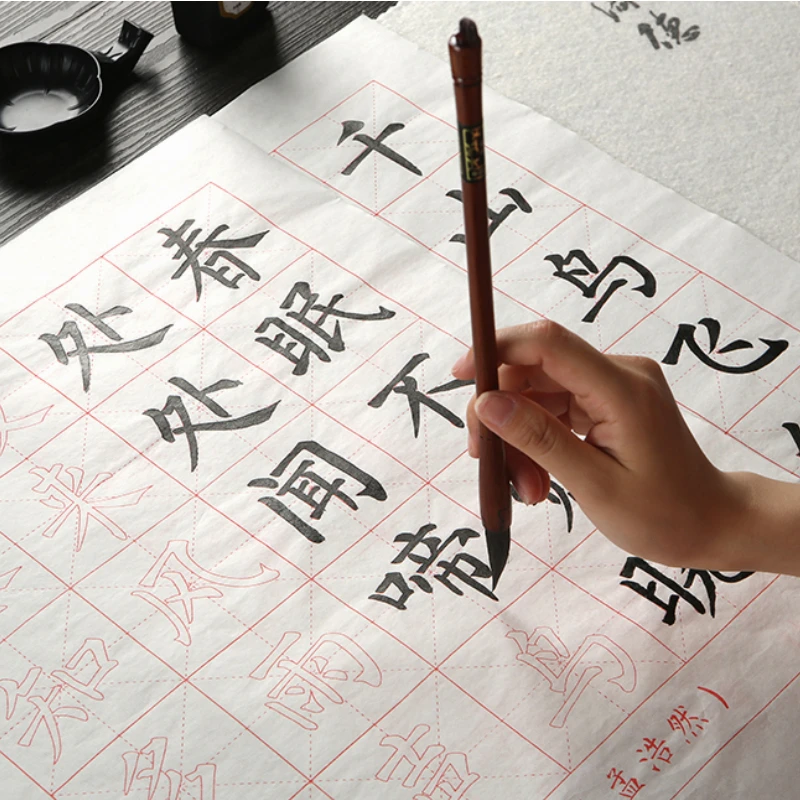 千山鸟飞
春眠不晓
处处闻啼鸟
来风雨声
知多
孟浩然)